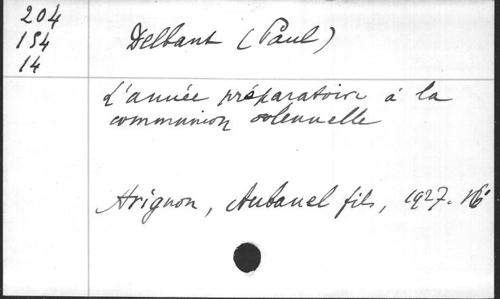 204
154
14
Delbant (Paul)
L'année préparatoire à la
communion solennelle
Avignon, Aubanel fils, 1927. 16°